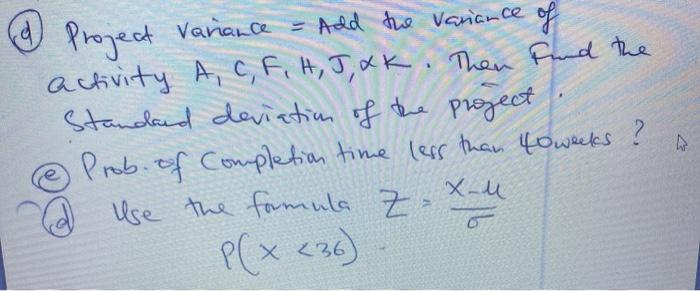 (d) Project Variance = Add the Variance of
activity A, C, F, H, J, & K. Then Find the
Standard deviation of the project.
(e) Prob. of Completion time less than 40 weeks ?
(d) Use the formula Z = X-μ/σ
P(X <36)